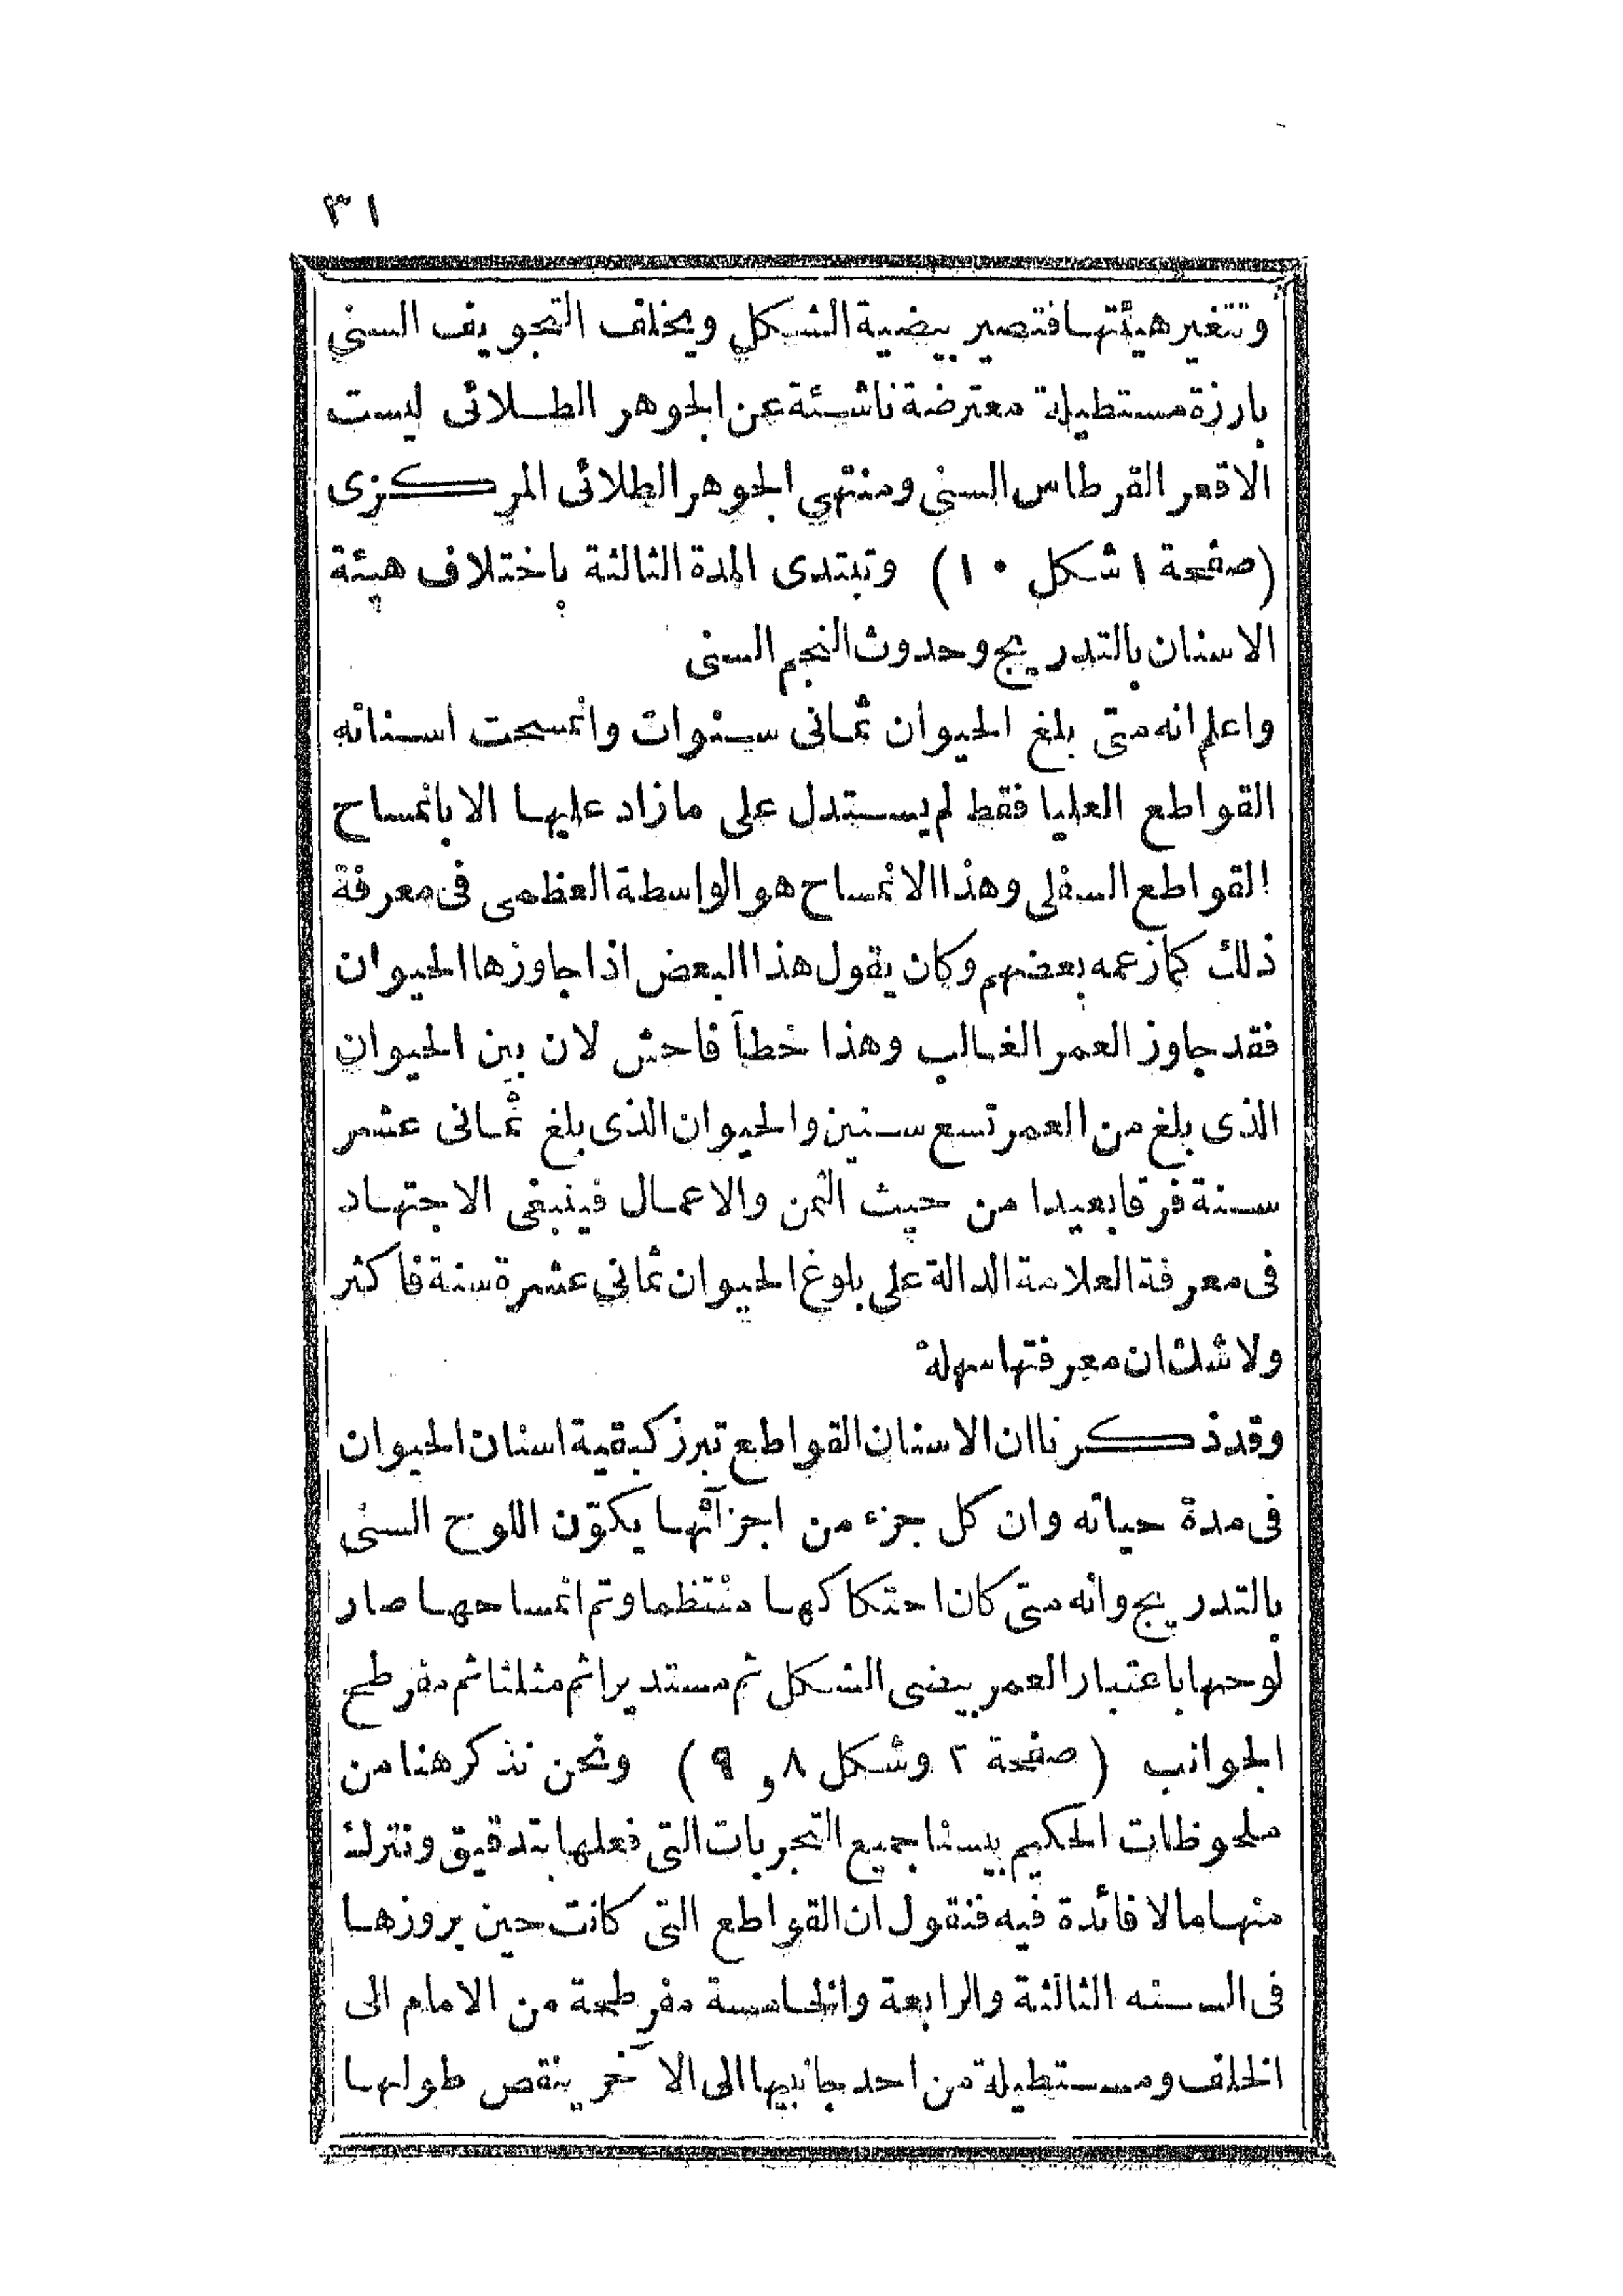 ٣١
وتتغير هيئتها فتصير بيضية الشكل ويخلف التجويف السنى
بارزة مستطيلة معترضة ناشئة عن الجوهر الطلائى ليست
الا قعر القرطاس السنى ومنتهى الجوهر الطلائى المركزى
(صفحة ١ شكل ١٠) وتبتدى المدة الثالثة باختلاف هيئة
الاسنان بالتدريج وحدوث النجم السنى
واعلم انه متى بلغ الحيوان ثمانى سنوات وانمسحت اسنانه
القواطع العليا فقط لم يستدل على ما زاد عليها الا بانمساح
القواطع السفلى وهذا الانمساح هو الواسطة العظمى فى معرفة
ذلك كما زعمه بعضهم وكان يقول هذا البعض اذا جاوزها الحيوان
فقد جاوز العمر الغالب وهذا خطأ فاحش لان بين الحيوان
الذى بلغ من العمر تسع سنين والحيوان الذى بلغ ثمانى عشر
سنة فرقا بعيدا من حيث الثمن والاعمال فينبغى الاجتهاد
فى معرفة العلامة الدالة على بلوغ الحيوان ثمانى عشرة سنة فاكثر
ولا شك ان معرفتها سهلة
وقد ذكرنا ان الاسنان القواطع تبرز كبقية اسنان الحيوان
فى مدة حياته وان كل جزء من اجزآئها يكوّن اللوح السنى
بالتدريج وانه متى كان احتكاكها منتظما وتم انمساحها صار
لوحها باعتبار العمر بيضى الشكل ثم مستديرا ثم مثلثا ثم مفرطح
الجوانب (صفحة ٢ وشكل ٨ و ٩) ونحن نذكر هنا من
ملحوظات الحكيم بيسنا جميع التجربات التى فعلها بتدقيق ونترك
منها ما لا فائدة فيه فنقول ان القواطع التى كانت حين بروزها
فى السنه الثالثة والرابعة والخامسة مفرطحة من الامام الى
الخلف ومستطيلة من احد جانبيها الى الآخر ينقص طولها